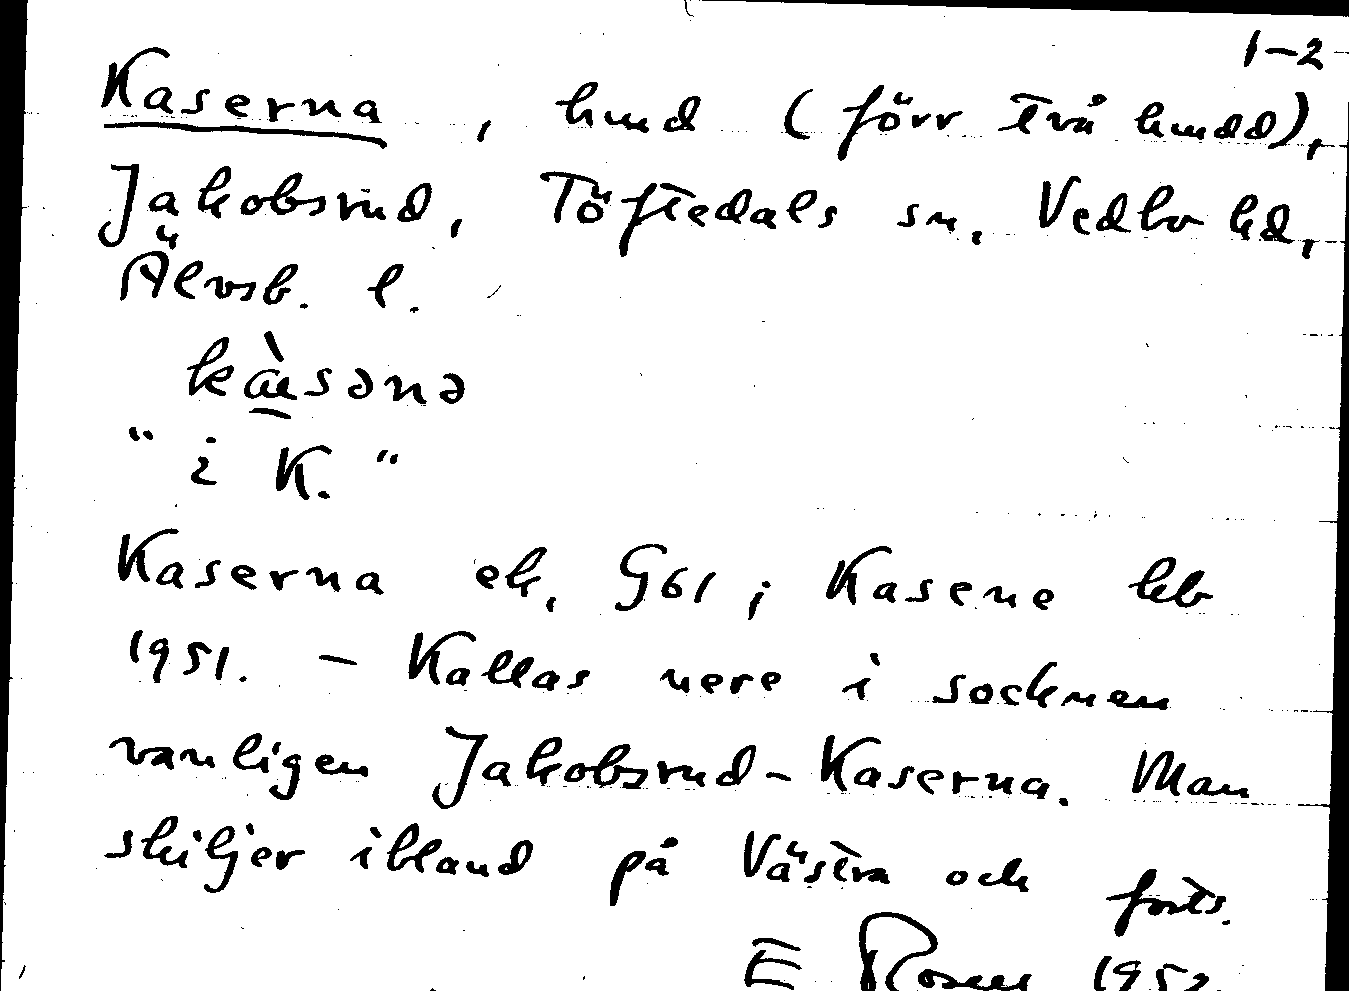 1-2
Kaserna, hmd (förr två hmdd),
Jakobsrud, Töftedals sn, Vedbo hd,
Älvsb. l.
kæ̀sənə
"i K."
Kaserna ek, G61; Kasene hb
1951. - Kallas nere i socknen
vanligen Jakobsrud-Kaserna. Man
skiljer ibland på Västra och forts.
E 1952